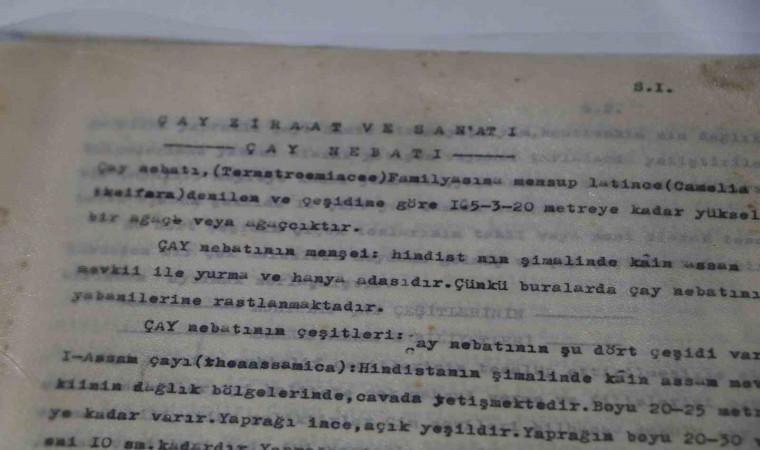 S.I.
ÇAY ZIRAAT VE SAN'ATI
ÇAY NEBATI
Çay nebatı,(Ternstroemiacee)Familyasına mensup latince(Camelia
denilen ve çeşidine göre I,5-3-20 metreye kadar yüksel
bir ağaç veya ağaççıktır.
ÇAY nebatının menşei: hindist nın şimalinde kâin assam
mevkii ile yurma ve hanya adasıdır.Çünkü buralarda çay nebatını
yabanilerine rastlanmaktadır.
ÇEŞİTLERİNİN
ÇAY nebatının çeşitleri: ay nebatının şu dört çeşidi var
I-Assam çayı(theaassamica):Hindistanın şimalinde kâin assam mev
kiinin dağlık bölgelerinde,cavada yetişmektedir.Boyu 20-25 metr
ye kadar varır.Yaprağı ince,açık yeşildir.Yaprağın boyu 20-30
eni IO sm.kadardır